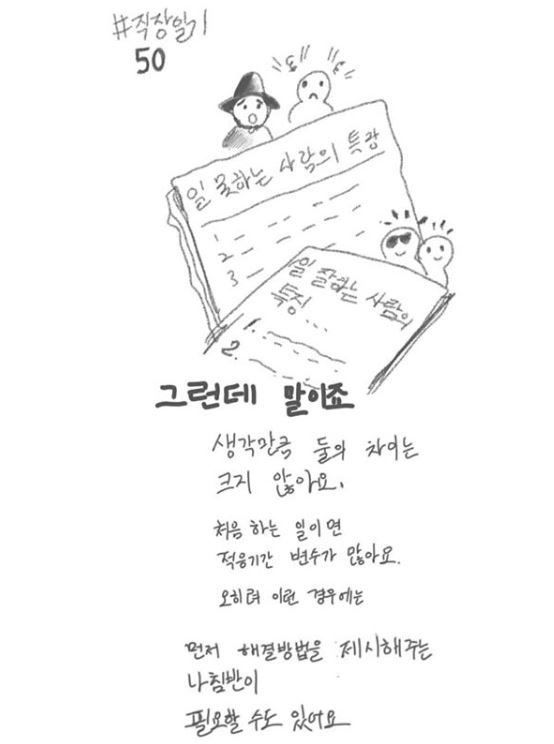 #직장일기
50
일 못하는 사람의 특징
1
2
3
일 잘하는 사람의
특징...
1.
2.
그런데 말이죠
생각만큼 둘의 차이는
크지 않아요.
처음 하는 일이면
적응기간 변수가 많아요.
오히려 이런 경우에는
먼저 해결방법을 제시해주는
나침반이
필요할 수도 있어요